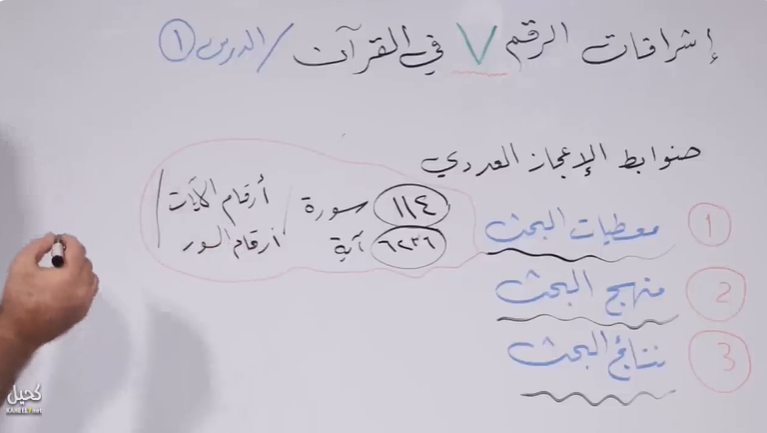 إشراقات الرقم ٧ في القرآن / الدرس ١
ضوابط الإعجاز العددي
1 معطيات البحث
١١٤ سورة / أرقام الآيات
٦٢٣٦ آية أرقام السور
2 منهج البحث
3 نتائج البحث
كحيل
KAHEEL7.net